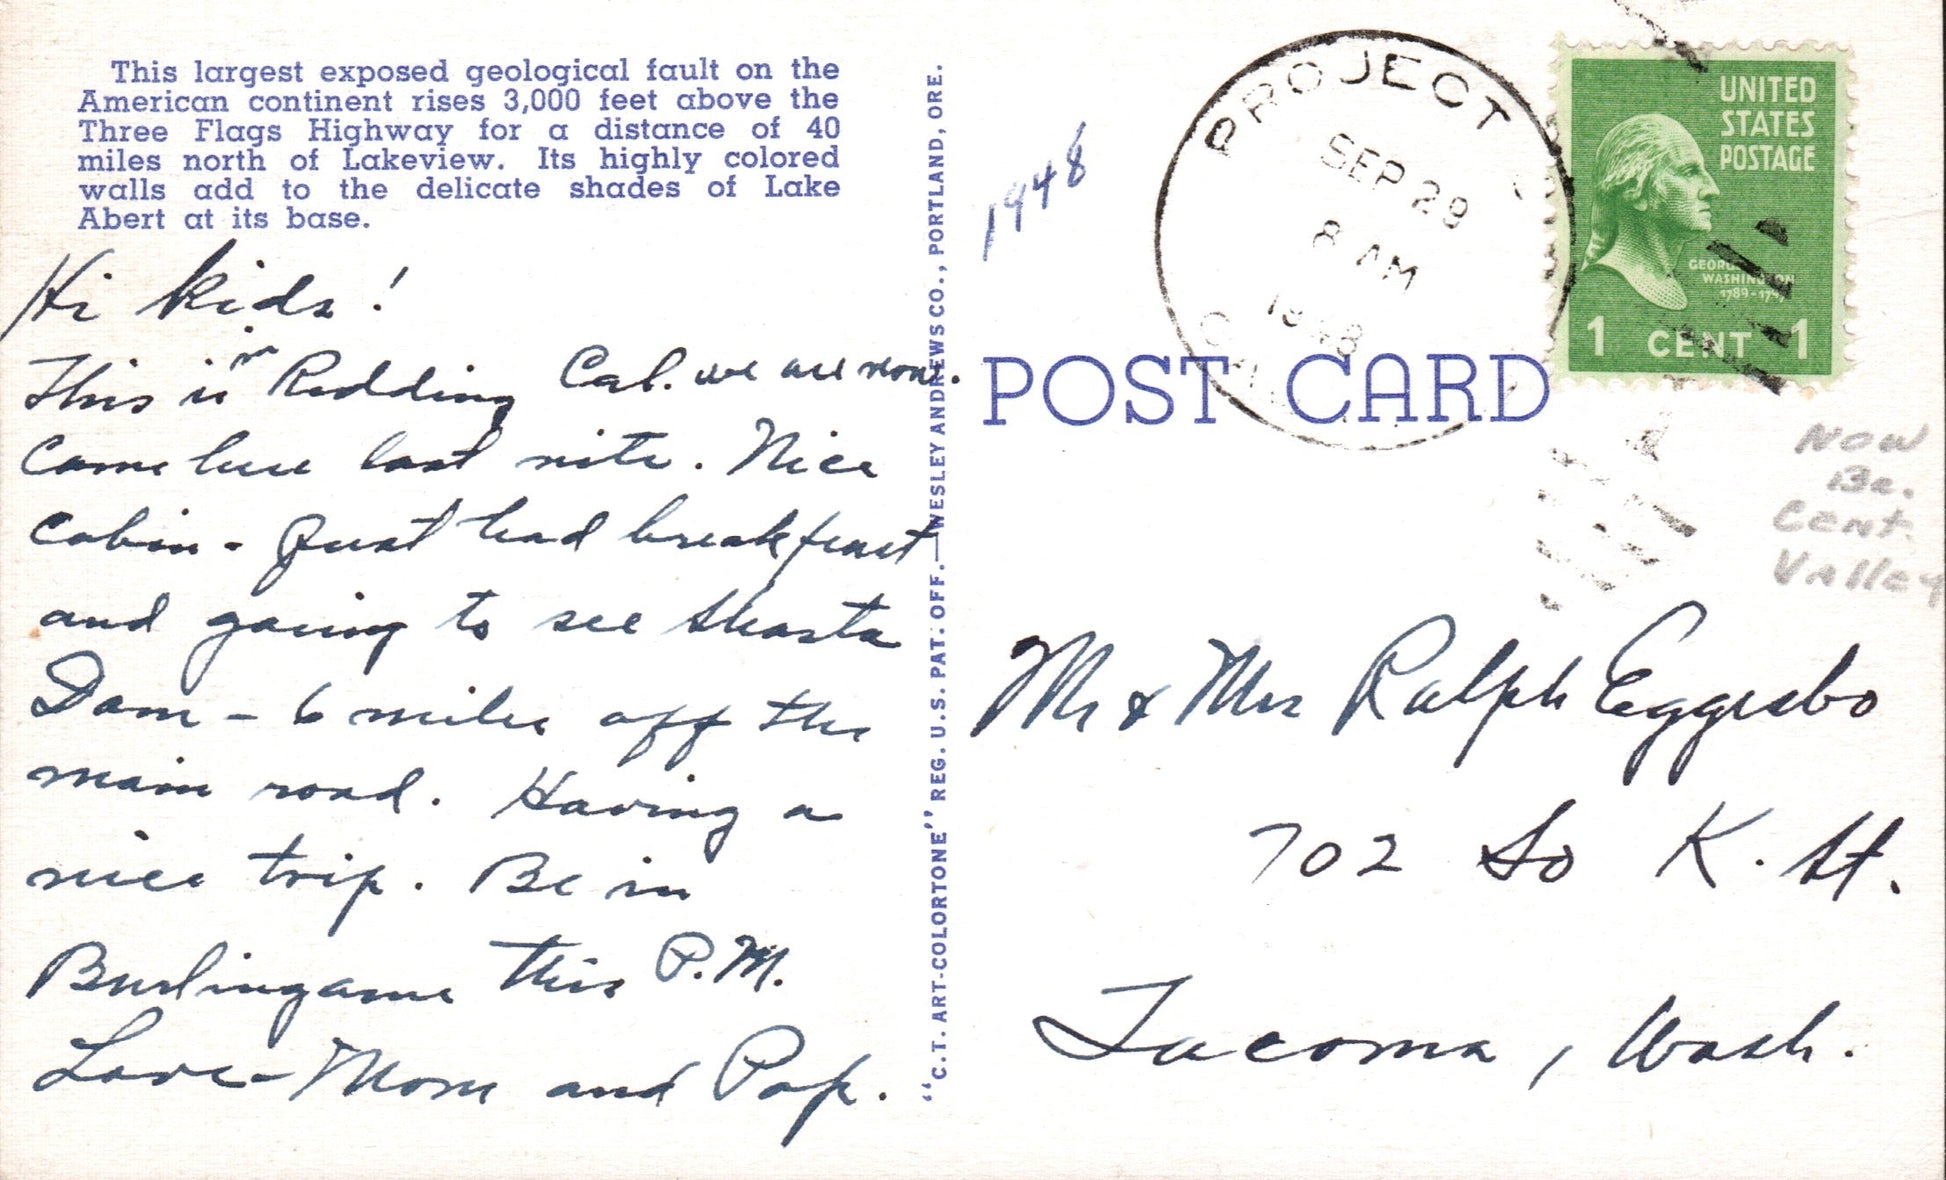 This largest exposed geological fault on the
American continent rises 3,000 feet above the
Three Flags Highway for a distance of 40
miles north of Lakeview. Its highly colored
walls add to the delicate shades of Lake
Abert at its base.
Hi kids!
This is in Redding Cal. we are now.
Came here last nite. Nice
cabin - Just had breakfast
and going to see Shasta
Dam - 6 miles off the
main road. Having a
nice trip. Be in
Burlingame this P.M.
Love - Mom and Pop.
"C.T. ART-COLORTONE" REG. U.S. PAT. OFF.—WESLEY ANDREWS CO., PORTLAND, ORE.
1948
PROJECT
SEP 29
8 AM
1948
UNITED
STATES
POSTAGE
GEORGE
WASHINGTON
1789-1797
1 CENT 1
POST CARD
NOW
Cent.
Valley
Mr & Mrs Ralph Eggesbo
702 So K. St.
Tacoma, Wash.